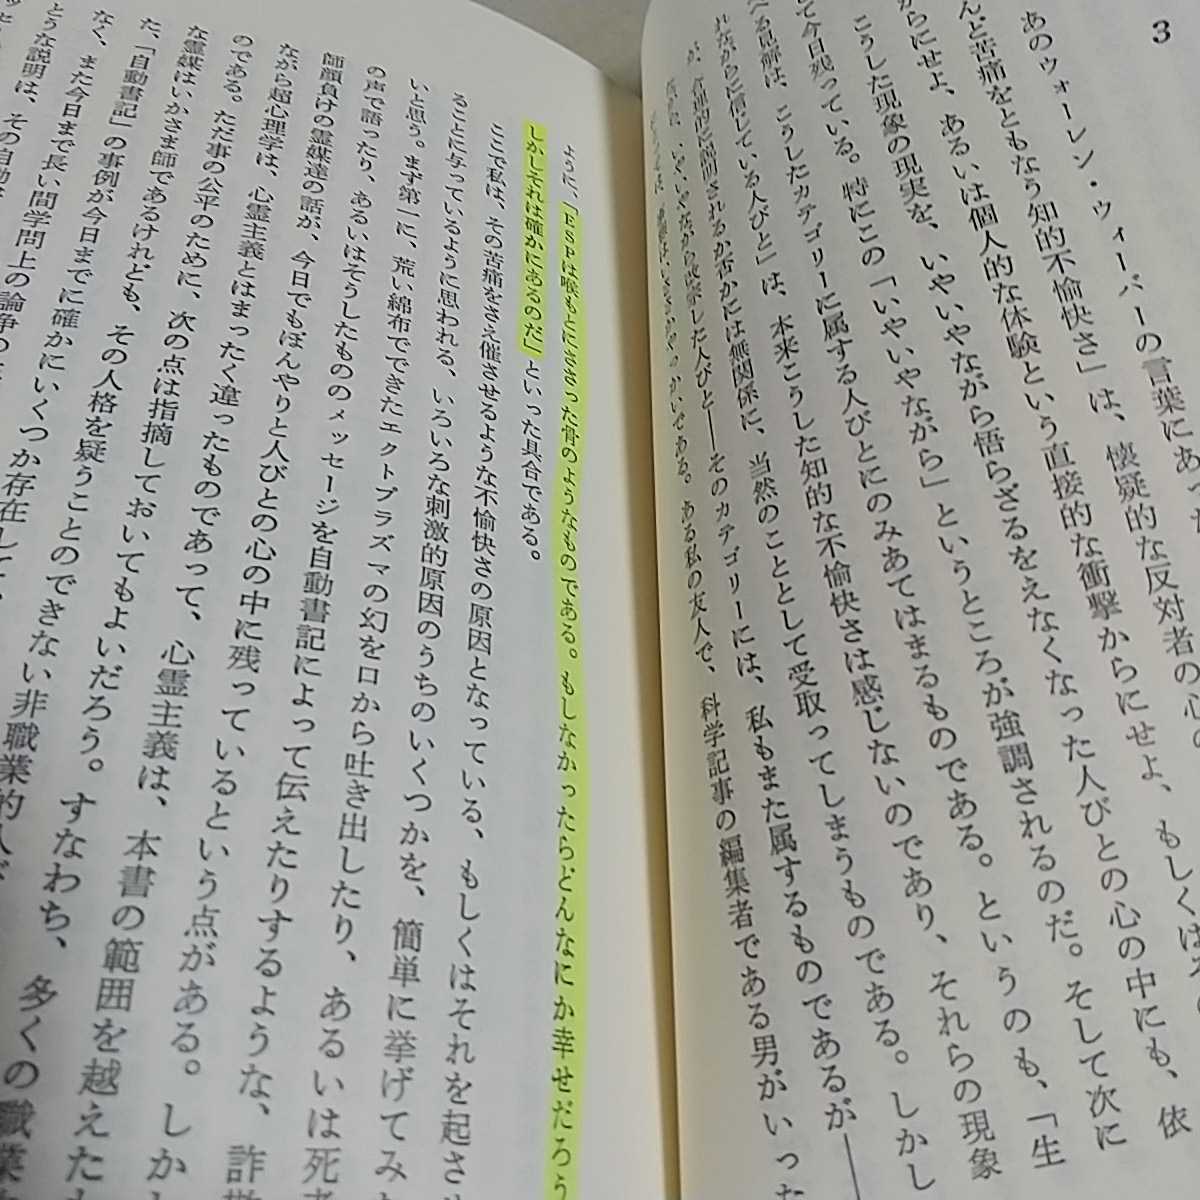 3
あのウォーレン・ウィーバーの言葉にあっ
んど苦痛をともなう知的不愉快さ」は、懐疑的な反対者の心の
からにせよ、あるいは個人的な体験という直接的な衝撃からにせよ、もしくは
こうした現象の現実を、いやいやながら悟らざるをえなくなった人びとの心の中にも、依
て今日残っている。特にこの「いやいやながら」というところが強調されるのだ。そして次に
べる見解は、こうしたカテゴリーに属する人びとにのみあてはまるものである。というのも、「生
れながらに信じている人びと」は、本来こうした知的な不愉快さは感じないのであり、それらの現象
が、合理的に説明されるか否かには無関係に、当然のこととして受取ってしまうものである。しかし
いやいやながら改宗した人びと――そのカテゴリーには、私もまた属するものであるが――
かいである。ある私の友人で、科学記事の編集者である男がいった
ように、「ESPは喉もとにささった骨のようなものである。もしなかったらどんなにか幸せだろう
しかしそれは確かにあるのだ」といった具合である。
ここで私は、その苦痛をさえ催させるような不愉快さの原因となっている、もしくはそれを起させ
ることに与っているように思われる、いろいろな刺激的原因のうちのいくつかを、簡単に挙げてみ
いと思う。まず第一に、荒い綿布でできたエクトプラズマの幻を口から吐き出したり、あるいは死
の声で語ったり、あるいはそうしたもののメッセージを自動書記によって伝えたりするような、詐
師顔負けの霊媒達の話が、今日でもぼんやりと人びとの心の中に残っているという点がある。しか
ながら超心理学は、心霊主義とはまったく違ったものであって、心霊主義は、本書の範囲を越えた
のである。ただ事の公平のために、次の点は指摘しておいてもよいだろう。すなわち、多くの職業
な霊媒はいかさま師であるけれども、その人格を疑うことのできない非職業的
た、「自動書記」の事例が今日までに確かにいくつか存在して
なく、また今日まで長い間学問上の論争の
とうな説明は、その自動